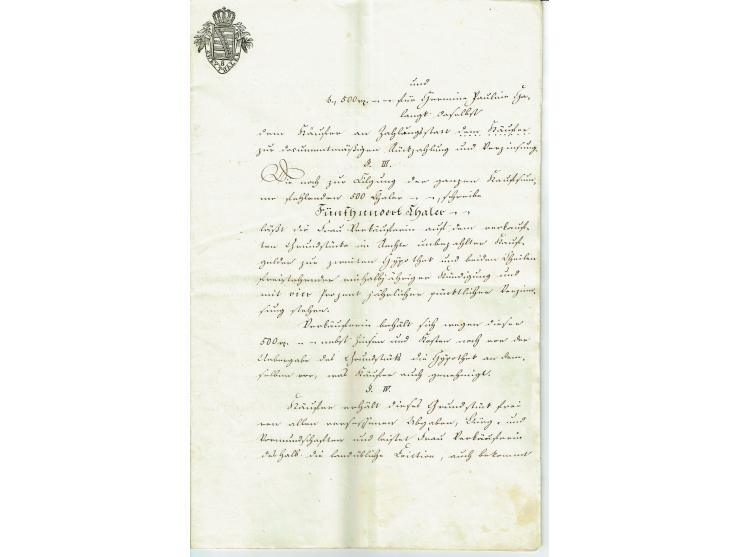 und
b., 500 rp. -- für Hermine Pauline Ga-
langt daselbst
dem Käufer an Zahlungsstatt dem Käufer
zur documentmäßigen Rückzahlung und Verzinsung.
§. III.
Die noch zur Tilgung der ganzen Kaufsum-
me fehlenden 500 Thaler --, schreibe
Fünfhundert Thaler --
läßt die Frau Verkäuferin auf dem verkauf-
ten Grundstücke in Rechte unbezahlter Kauf-
gelder zur zweiten Hypothek und beiden Theilen
freistehender einhalbjähriger Kündigung und
mit vier Prozent jährlicher pünktlicher Verzin-
sung stehen.
Verkäuferin behält sich wegen dieser
500 rp. -- nebst Zinsen und Kosten noch vor der
Uebergabe des Grundstücks die Hypothek an dem-
selben vor, was Käufer auch genehmigt.
§. IV.
Käufer erhält dieses Grundstück frei
von allen versessenen Abgaben, und
Vormundschaften und leistet Frau Verkäuferin
deshalb die landübliche auch bekommt